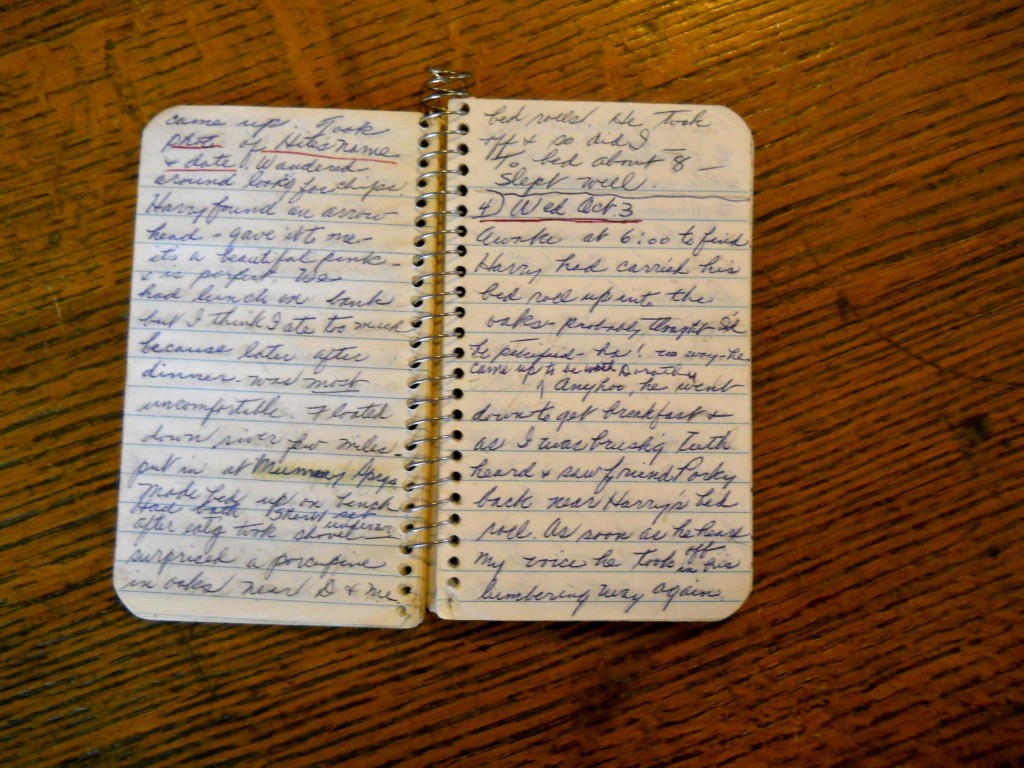 came up. Took
photo of Hite's name
& date. Wandered
around lookg for chips
Harry found an arrow
head - gave it to me -
its a beautiful pink -
& is perfect. We
had lunch on bank
but I think I ate too much
because later after
dinner - was most
uncomfortable. Floated
down river few miles -
put in at Mummy
Made bed up on bench
Had bath
after eatg took shovel
surprised a porcupine
in oaks near D & me
bed rolls. He took
off & so did I
To bed about 8 -
Slept well.
4) Wed Oct. 3
Awoke at 6:00 to find
Harry had carried his
bed roll up into the
oaks - probably thought I'd
be petrified - ha! no way - he
came up to be with Dorothy
Anyhoo, he went
down to get breakfast &
as I was brushg teeth
heard & saw friend Porky
back near Harry's bed
roll. As soon as he heard
my voice he took off in his
lumbering way again